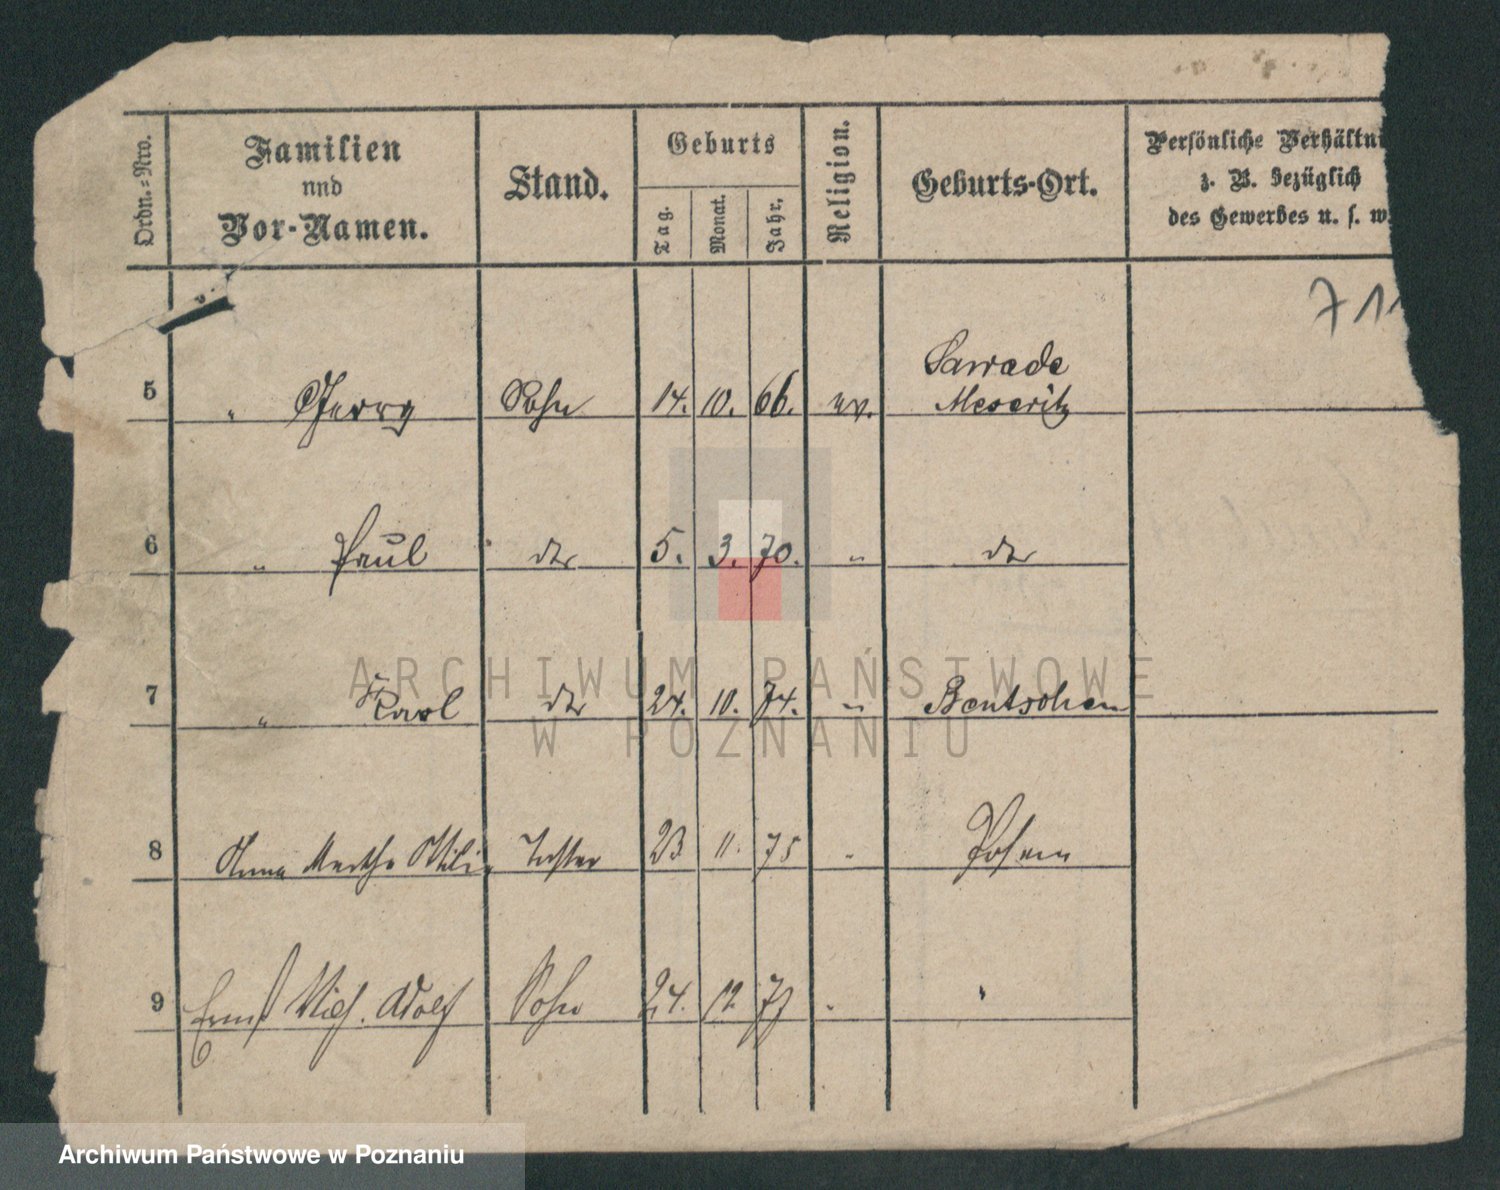 Ordn.=Nro.
Familien
und
Vor-Namen.
Stand.
Geburts
Tag.
Monat.
Jahr.
Religion.
Geburts-Ort.
Persönliche Verhältni
z. B. bezüglich
des Gewerbes u. s. w.
711
5 " Georg Sohn 14. 10. 66. ev. Lawade
Meseritz
6 " Paul do 5. 3. 70. " do
7 " Karl do 24. 10. 74. " Bentschen
8 Anna Martha Ottilie Tochter 23 11. 75 " Posen
9 Ernst Adolf Sohn 24. 12. 77 " "
ARCHIWUM PAŃSTWOWE
W POZNANIU
Archiwum Państwowe w Poznaniu